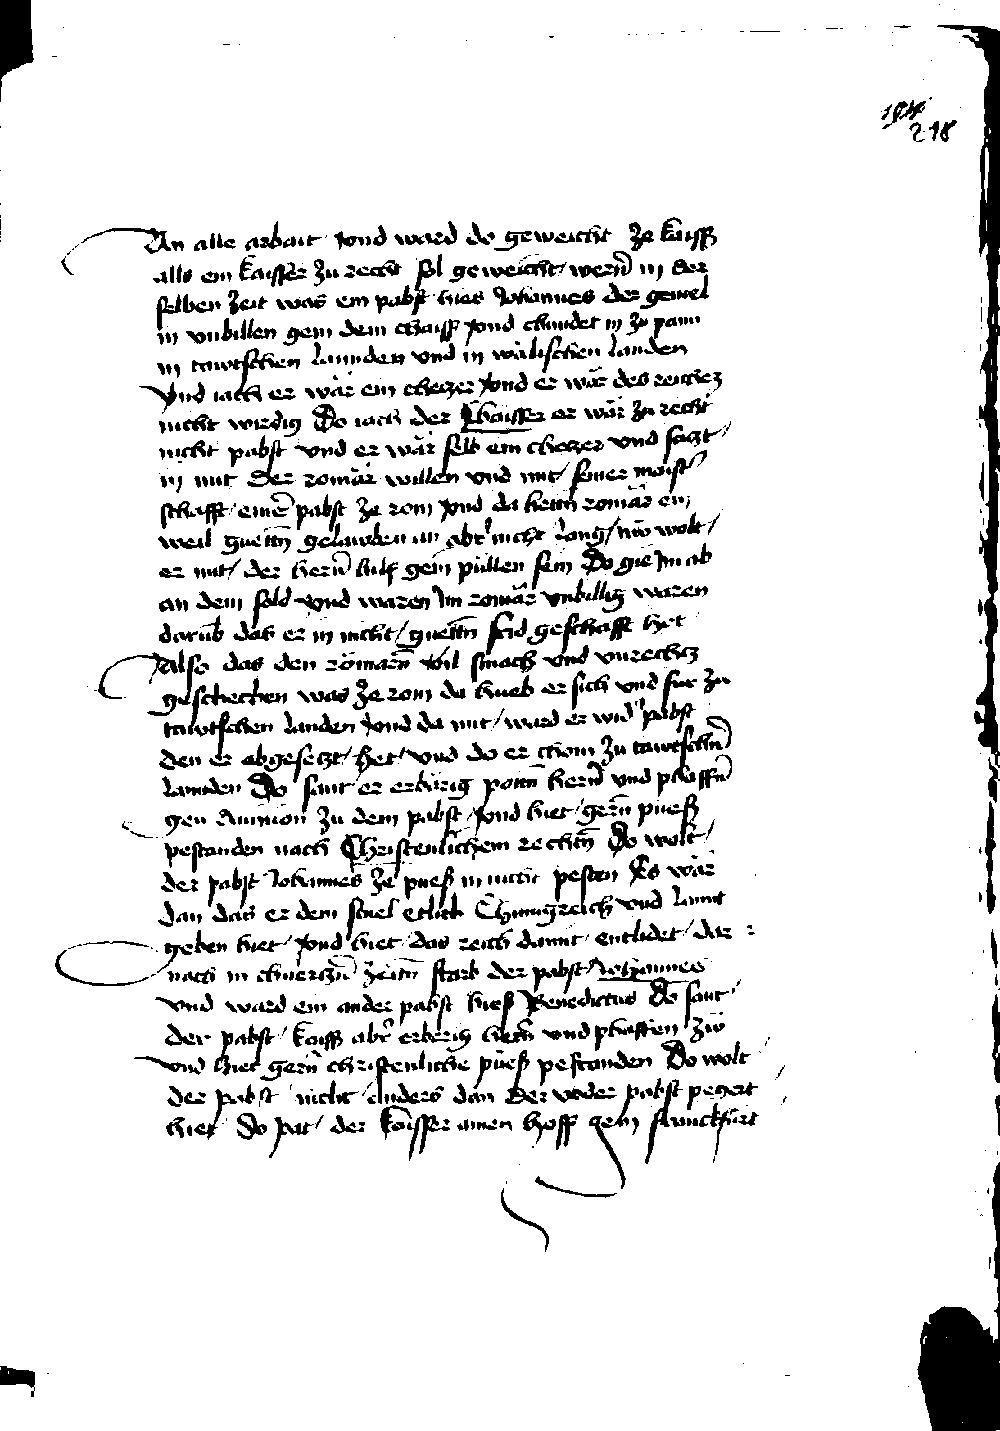 218
An alle arbait vnd ward do geweicht ze kaiss
alls ein kaisser zu recht sol geweicht werñ in der
selben zeit was ein pabst hies Johannes der gewel
in vnbillen gem dem chaiss vnd chundet in zu pann
in tawtschen lannden vnd in wälischen landen
Vnd iach er wär ein checzer vnd er wär des reichcz
nicht wirdig Do iach der Chaisser er wär zu recht
nicht pabst vnd er wär selb ein checzer vnd saczt
in mit der romär willen vnd mit seiner maist
schafft einē pabst ze rom vnd da hettn̄ romär ein
weil guettn̄ gelawben an abr nicht lang wo wolt
er mit der herñ hilf gein püllen sein Do gie Im ab
an dem sold vnd waren Im romär vnbillig waren
darūb das er in nicht guettn̄ frid geschafft het
Also das den römarn̄ vil smach vnd vnrechcz
geschechen was ze rom da hueb er sich vnd fur zu
tawtschen landen vnd da mit ward er wid pabst
den er abgeseczt het vnd do er chom zu tawtschn̄
lannden Do sant er erbärig potn̄ herñ vnd phaffn̄
gen Auinion zu dem pabst vnd hiet gern̄ puess
pestanden nach Christenlichem rechtn̄ Do wolt
der pabst Johannes ze puess in nicht pesten Es wär
dan das er dem stuel etlich Chunigreich vnd lannt
geben hiet vnd hiet das reich damit entludet dar
nach in churczn̄ zeitn̄ starb der pabst Johannes
vnd ward ein ander pabst hiess Benedictus Do sant
der pabst kaiss abr erberig herñ vnd phaffen zw
vnd hiet gern̄ christenliche püess pestanden Do wolt
der pabst nicht anders dan der voder pabst pegert
hiet Do pat der kaisser ainen hoff gein franckfürt